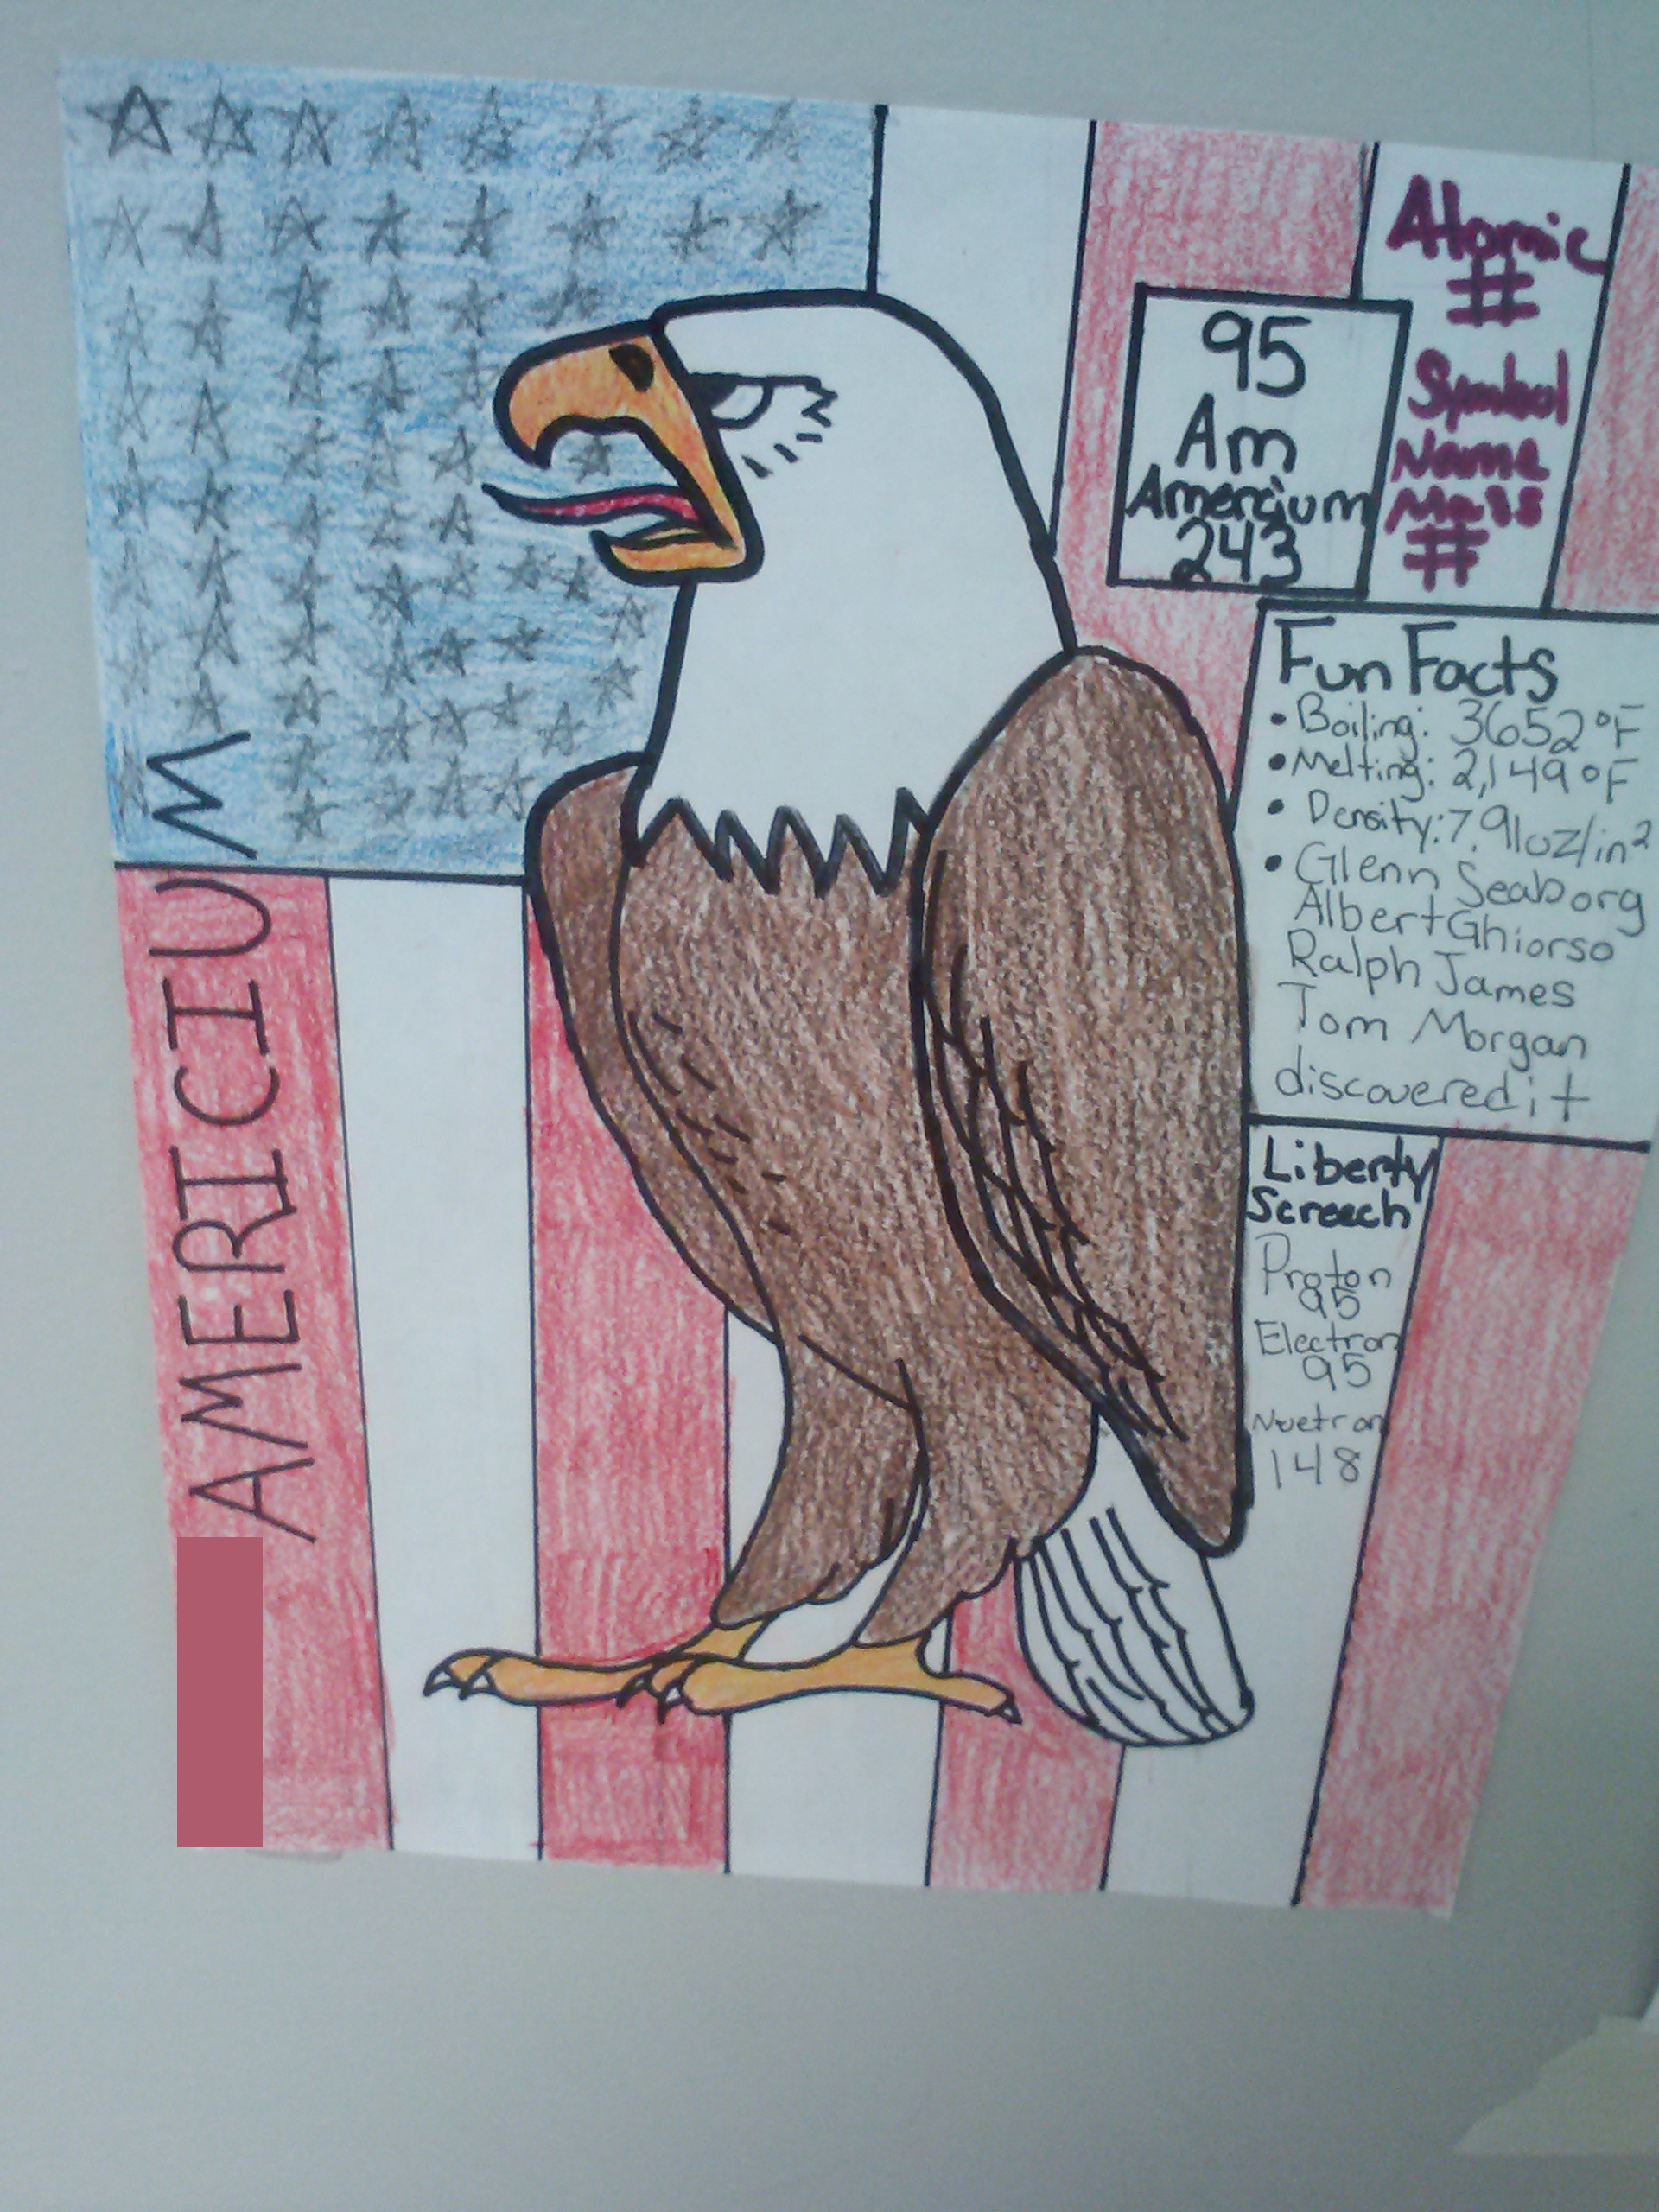 AMERICIUM
95
Am
Amercium
243
Atomic
#
Symbol
Name
Mass
#
Fun Facts
• Boiling: 3652°F
• Melting: 2,149°F
• Density: 7.91oz/in²
• Glenn Seaborg
Albert Ghiorso
Ralph James
Tom Morgan
discovered it
Liberty
Screech
Proton
95
Electron
95
Nuetron
148